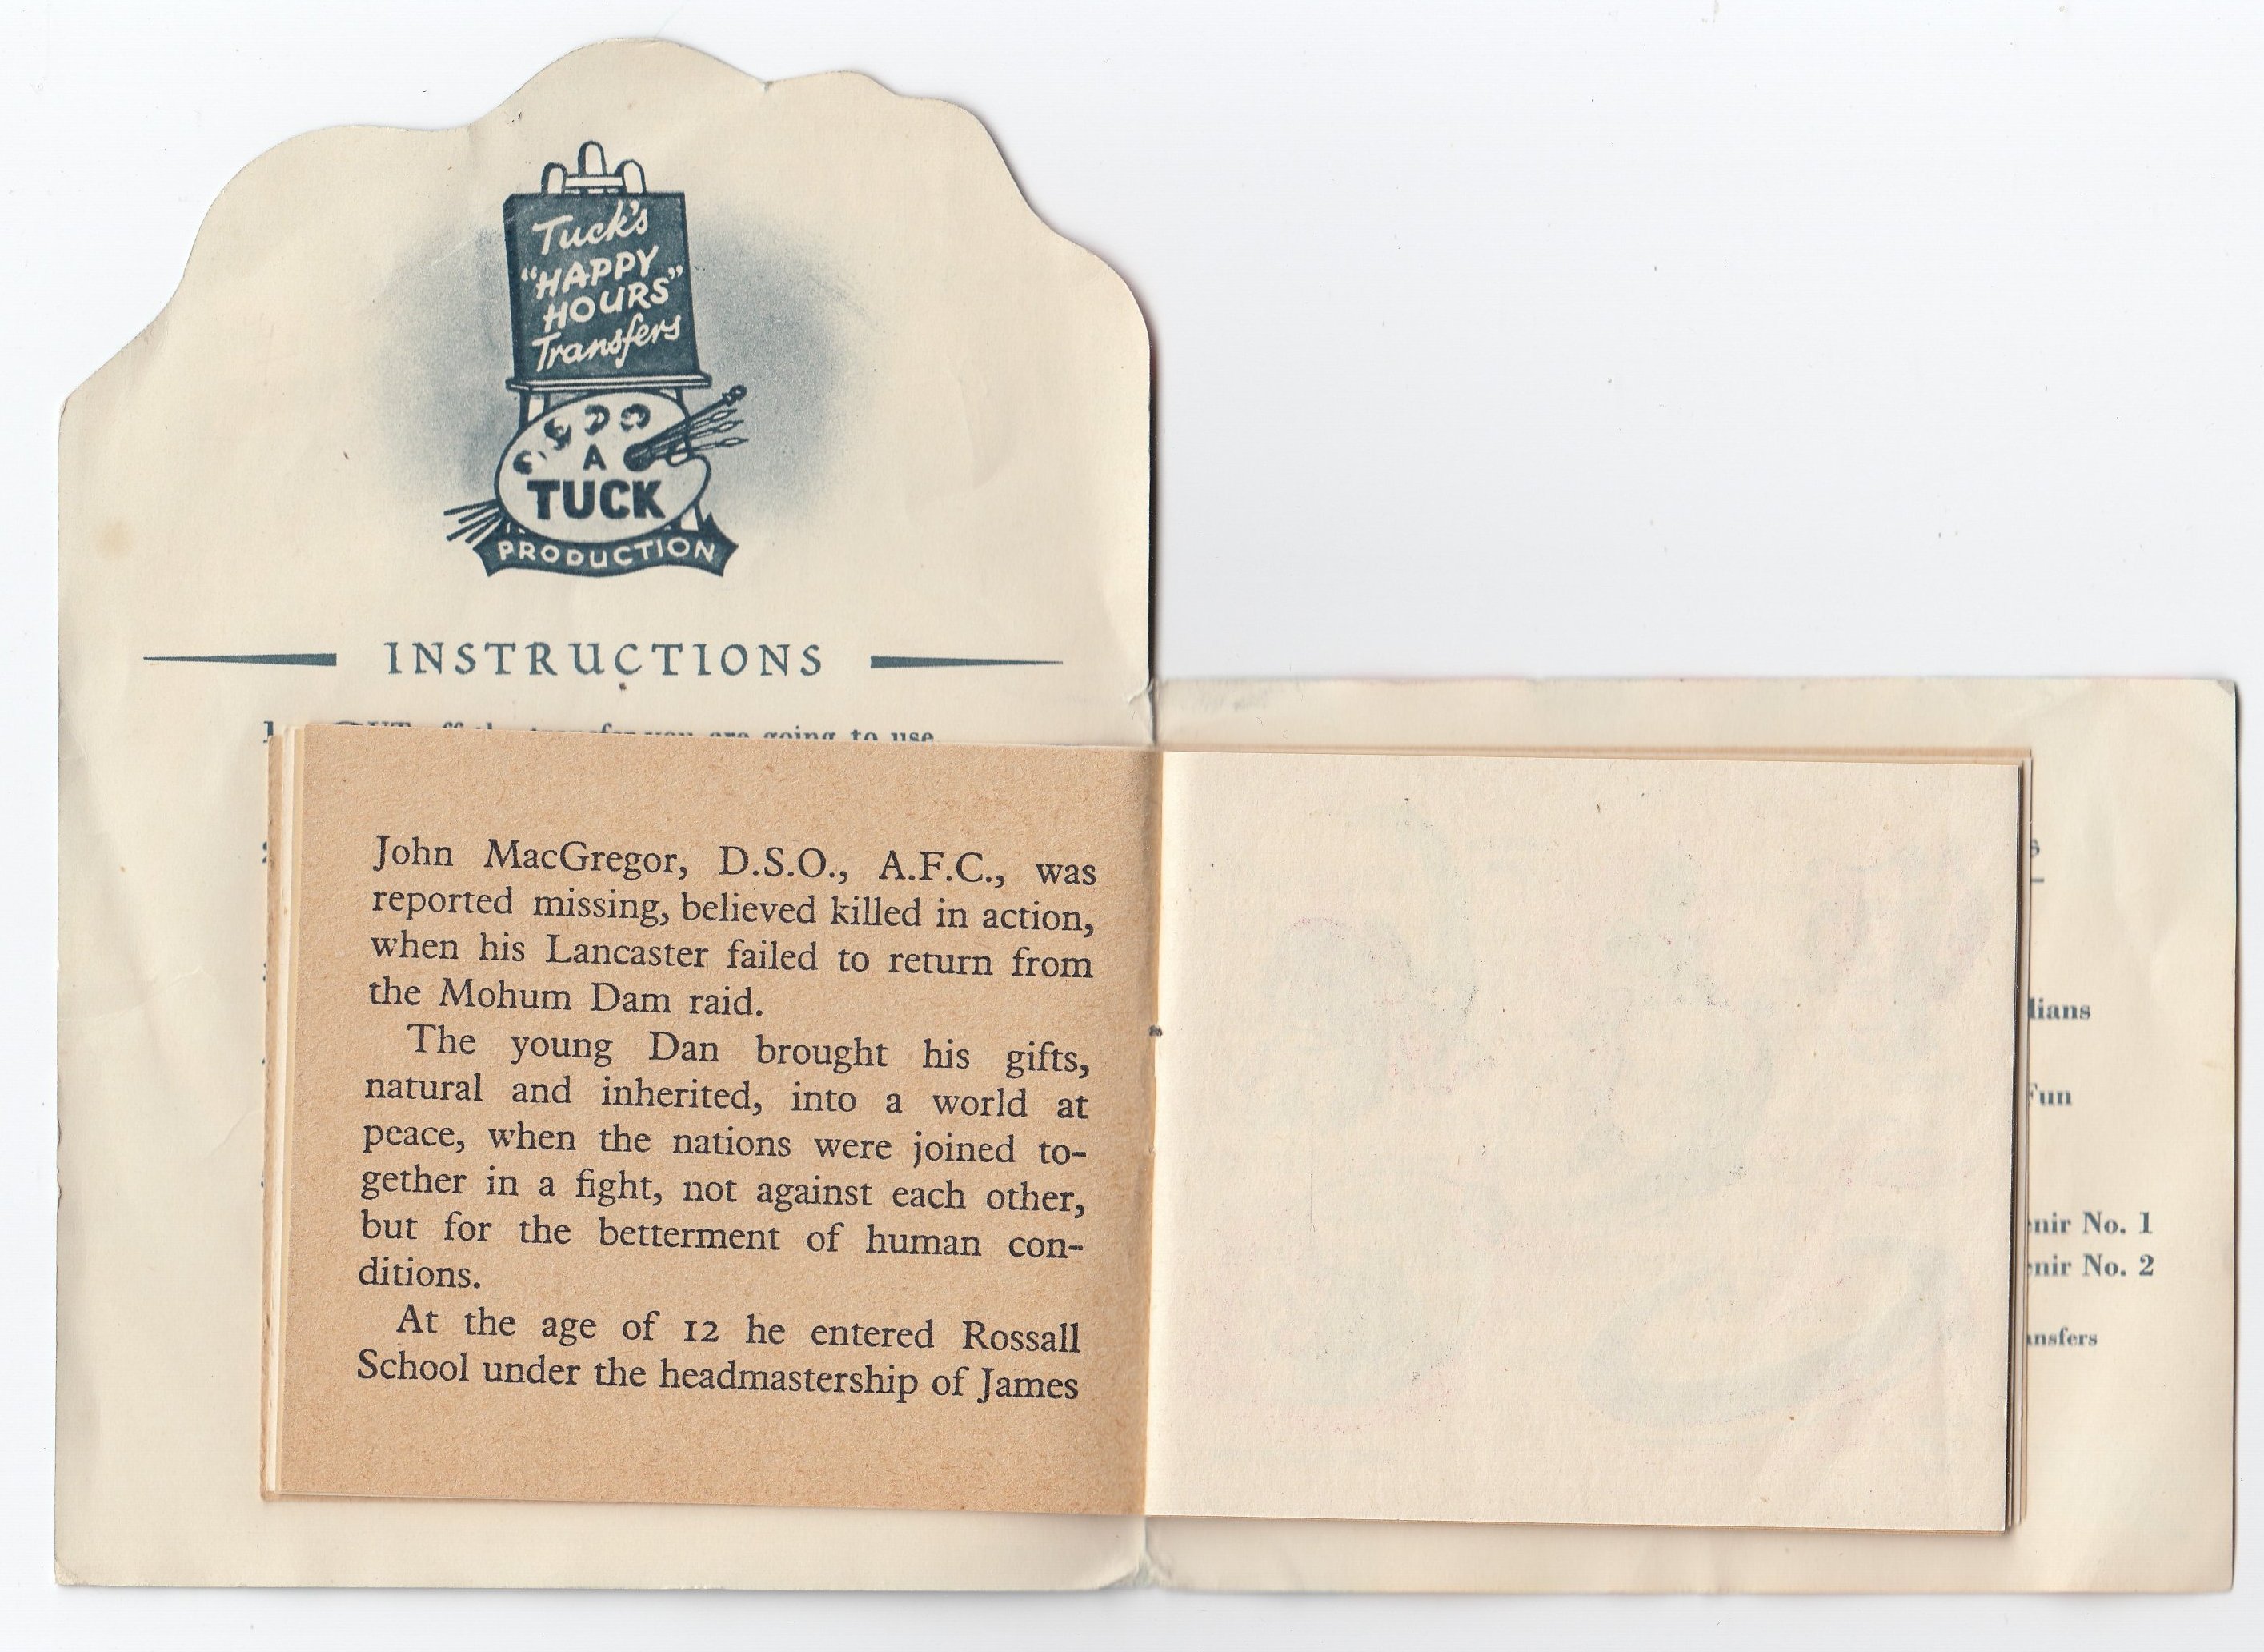 Tuck's
"HAPPY
HOURS"
Transfers
A
TUCK
PRODUCTION
INSTRUCTIONS
1. off the transfer you are going to use
John MacGregor, D.S.O., A.F.C., was
reported missing, believed killed in action,
when his Lancaster failed to return from
the Mohum Dam raid.
The young Dan brought his gifts,
natural and inherited, into a world at
peace, when the nations were joined to-
gether in a fight, not against each other,
but for the betterment of human con-
ditions.
At the age of 12 he entered Rossall
School under the headmastership of James
No. 1
No. 2